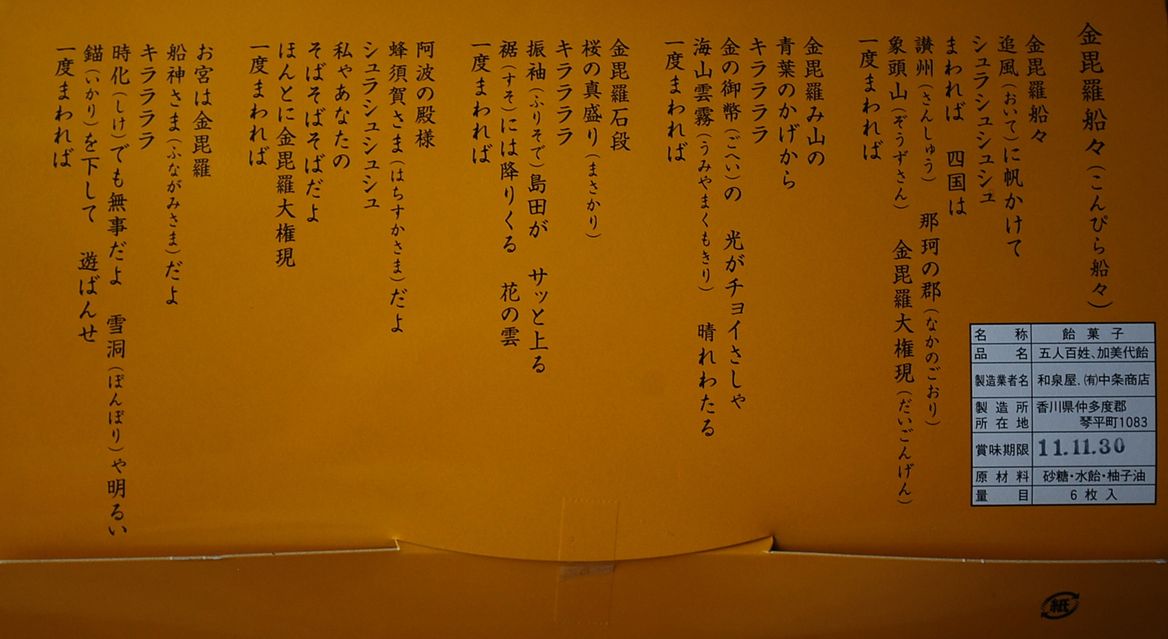 金毘羅船々（こんぴら船々）
金毘羅船々
追風（おいて）に帆かけて
シュラシュシュシュ
まわれば　四国は
讃州（さんしゅう）　那珂の郡（なかのごおり）
象頭山（ぞうずさん）　金毘羅大権現（だいごんげん）
一度まわれば
金毘羅み山の
青葉のかげから
キララララ
金の御幣（ごへい）の　光がチョイさしゃ
海山雲霧（うみやまくもきり）　晴れわたる
一度まわれば
金毘羅石段
桜の真盛り（まさかり）
キララララ
振袖（ふりそで）島田が　サッと上る
裾（すそ）には降りくる　花の雲
一度まわれば
阿波の殿様
蜂須賀さま（はちすかさま）だよ
シュラシュシュシュ
私ゃあなたの
そばそばそばだよ
ほんとに金毘羅大権現
一度まわれば
お宮は金毘羅
船神さま（ふながみさま）だよ
キララララ
時化（しけ）でも無事だよ　雪洞（ぼんぼり）や明るい
錨（いかり）を下して　遊ばんせ
一度まわれば
名称　飴菓子
品名　五人百姓、加美代飴
製造業者名　和泉屋．㈲中条商店
製造所所在地　香川県仲多度郡
琴平町1083
賞味期限　11.11.30
原材料　砂糖・水飴・柚子油
量目　6枚入
紙